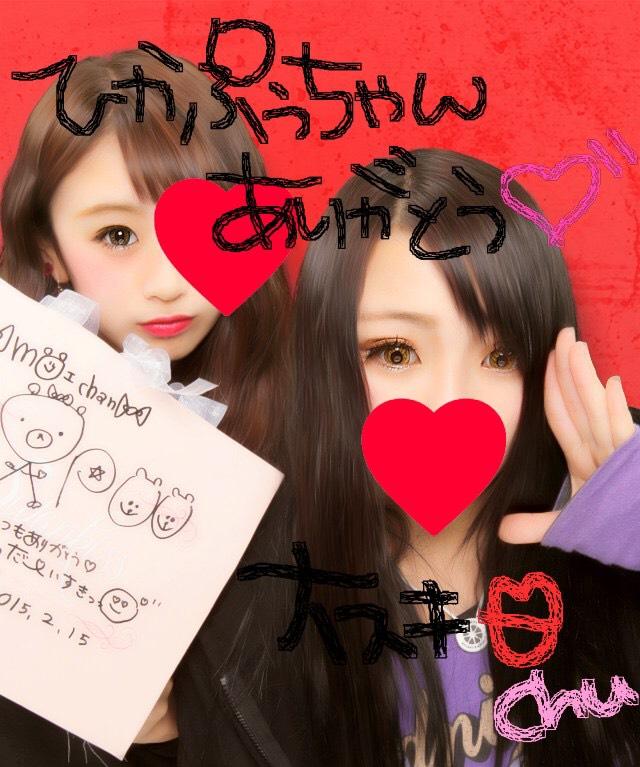 ひかぷぅちゃん
ありがとう
moi chan
つもありがとう♡
だいすきっ
2015.2.15
大スキ
chu